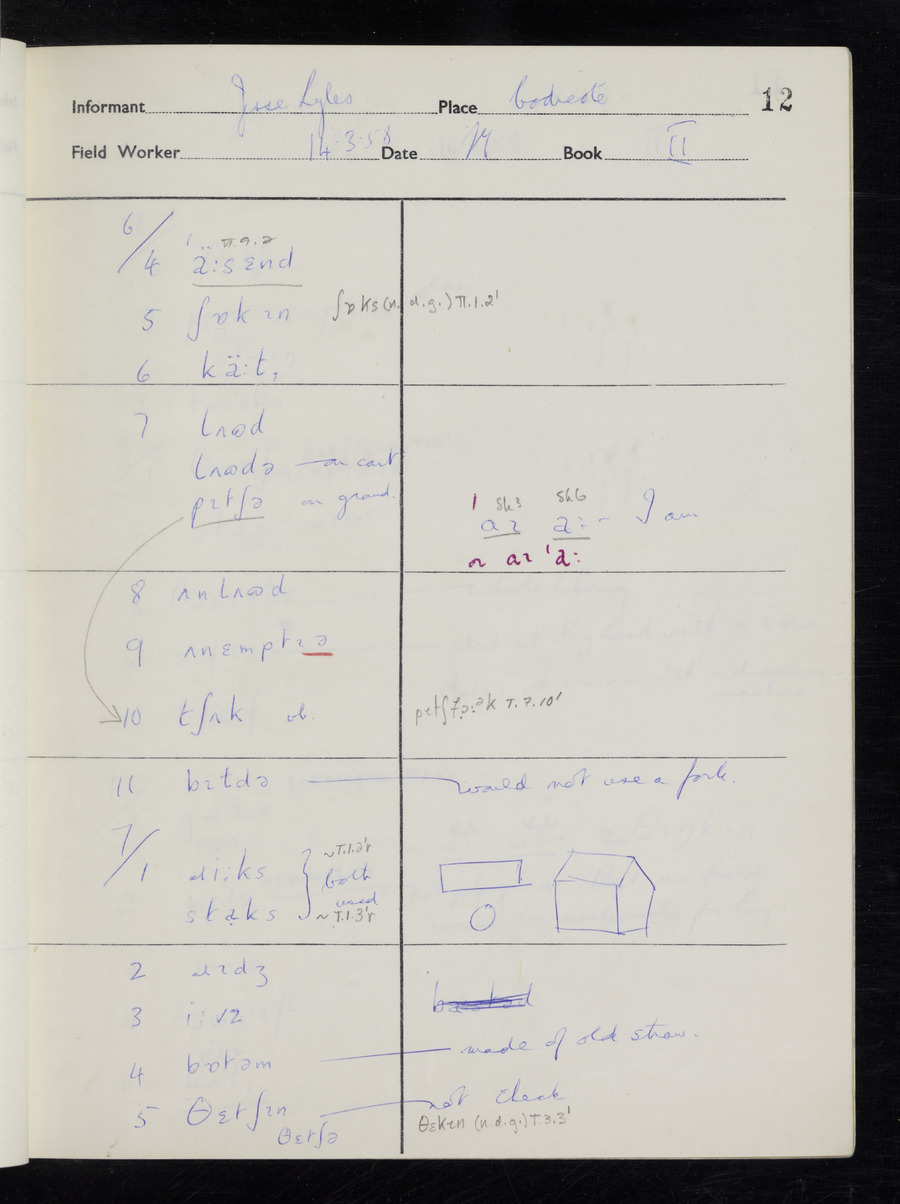 12
Informant Jesse Lyles Place
Field Worker 14.3.58 Date Book II
6/
4 ä:sɛnd II.9.2
5 ʃɒkɪn ʃɒks (n.d.g.) II.1.2'
6 kä:t,
7 lʌɷd
lʌɷdə — on cart
pɪtʃə on ground.
1 Sh3 Sh6
aɪ a: - I am
aɪ 'a:
8 ʌnlʌɷd
9 ʌnɛmptɪə
10 tʃʌk vb. pɪtʃfɔ:ᵊk I.7.10'
11 bɪtdə — would not use a fork.
7/
1 ɹi:ks ~I.1.2'r
both
used
stäks ~I.1.3'r
2 ɹɪdʒ
3 i:vz
4 bɒtəm — made of old straw.
5 θɛtʃɪn — not check
θɛtʃə θɛkɪn (n.d.g.) I.3.3'